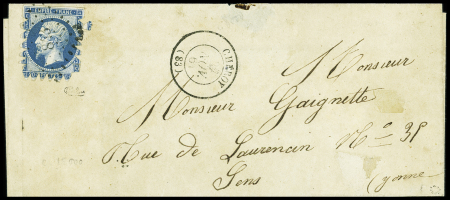 EMPIRE FRANC
CHEROY
NOV
(83)
Monsieur
Monsieur Gaignette
Rue de Laurencin No 35
Sens
Yonne